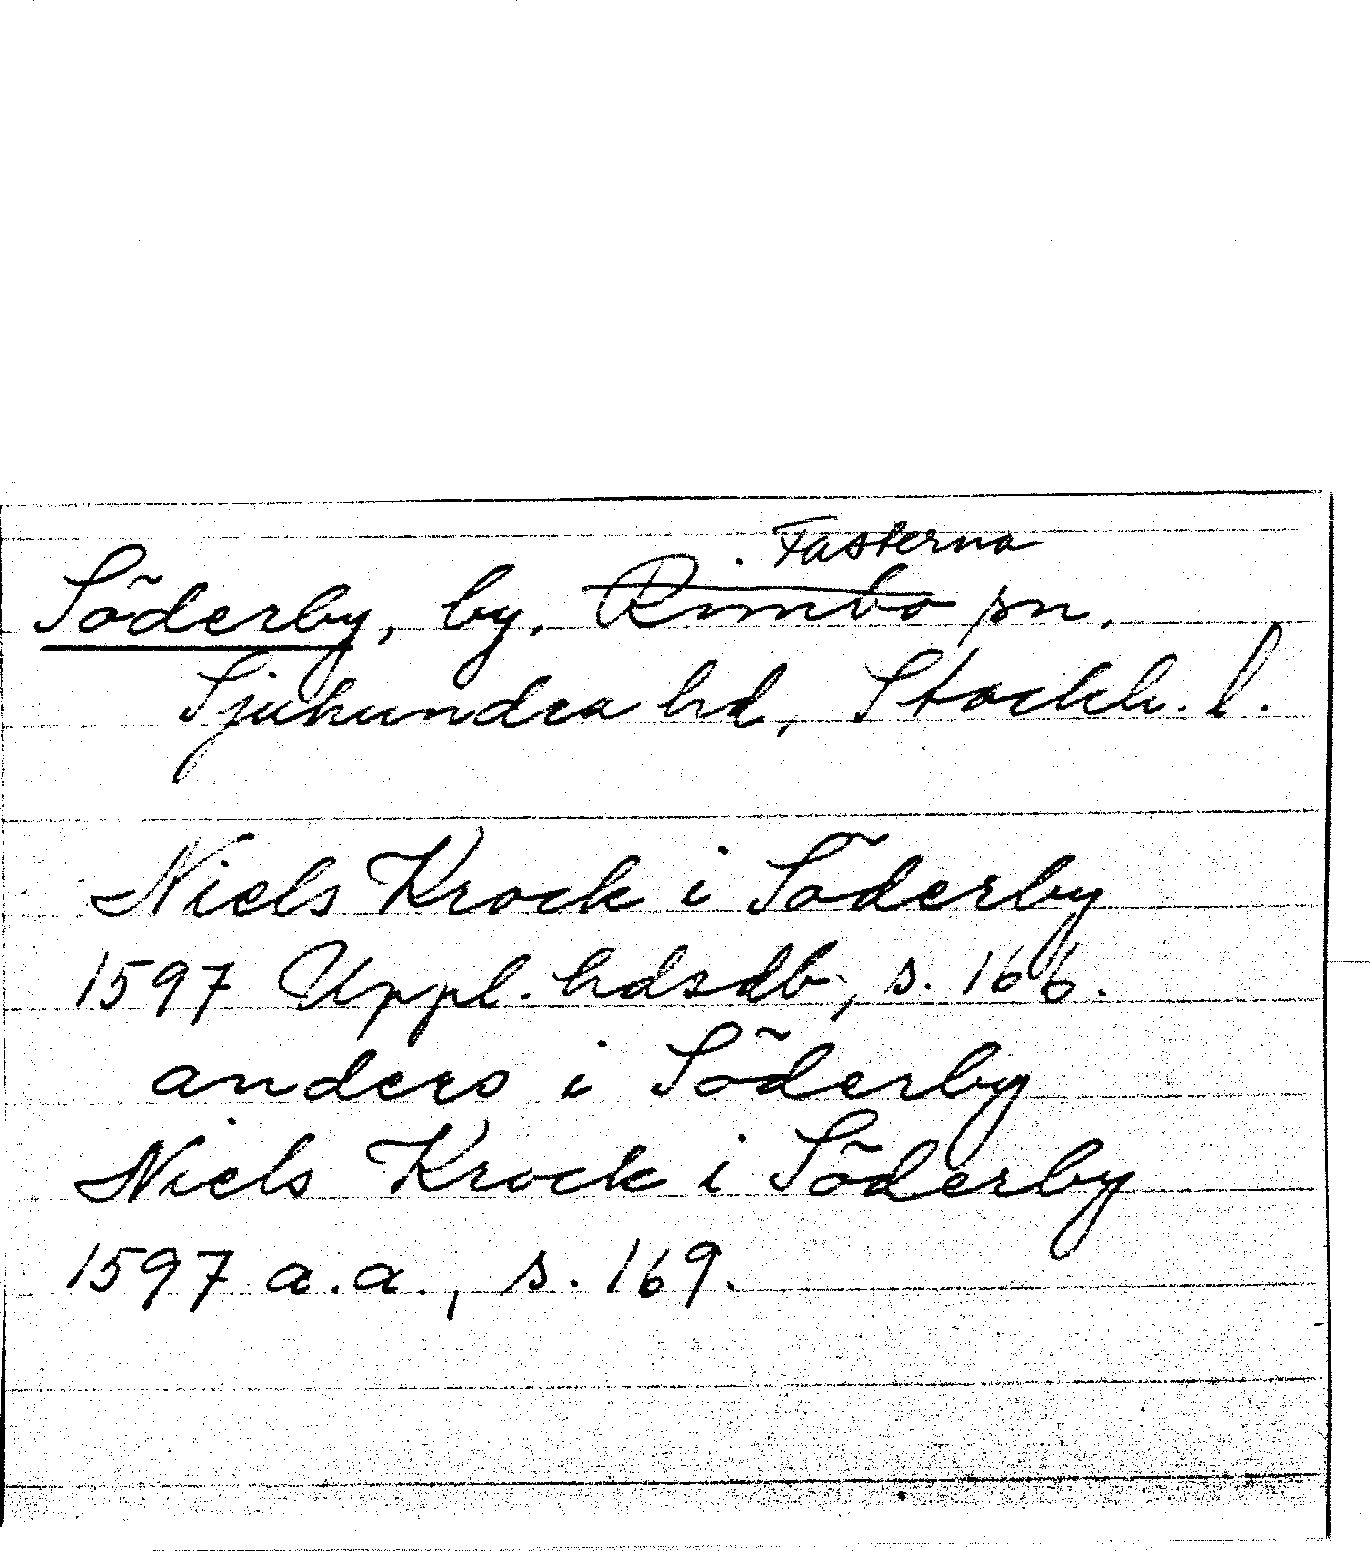 Fasterna
Söderby, by, Rimbo sn.
Sjuhundra hd, Stockh. l.
Niels Krock i Söderby
1597 Uppl. hdsdb, s. 166.
anders i Söderby
Niels Krock i Söderby
1597 a.a., s. 169.